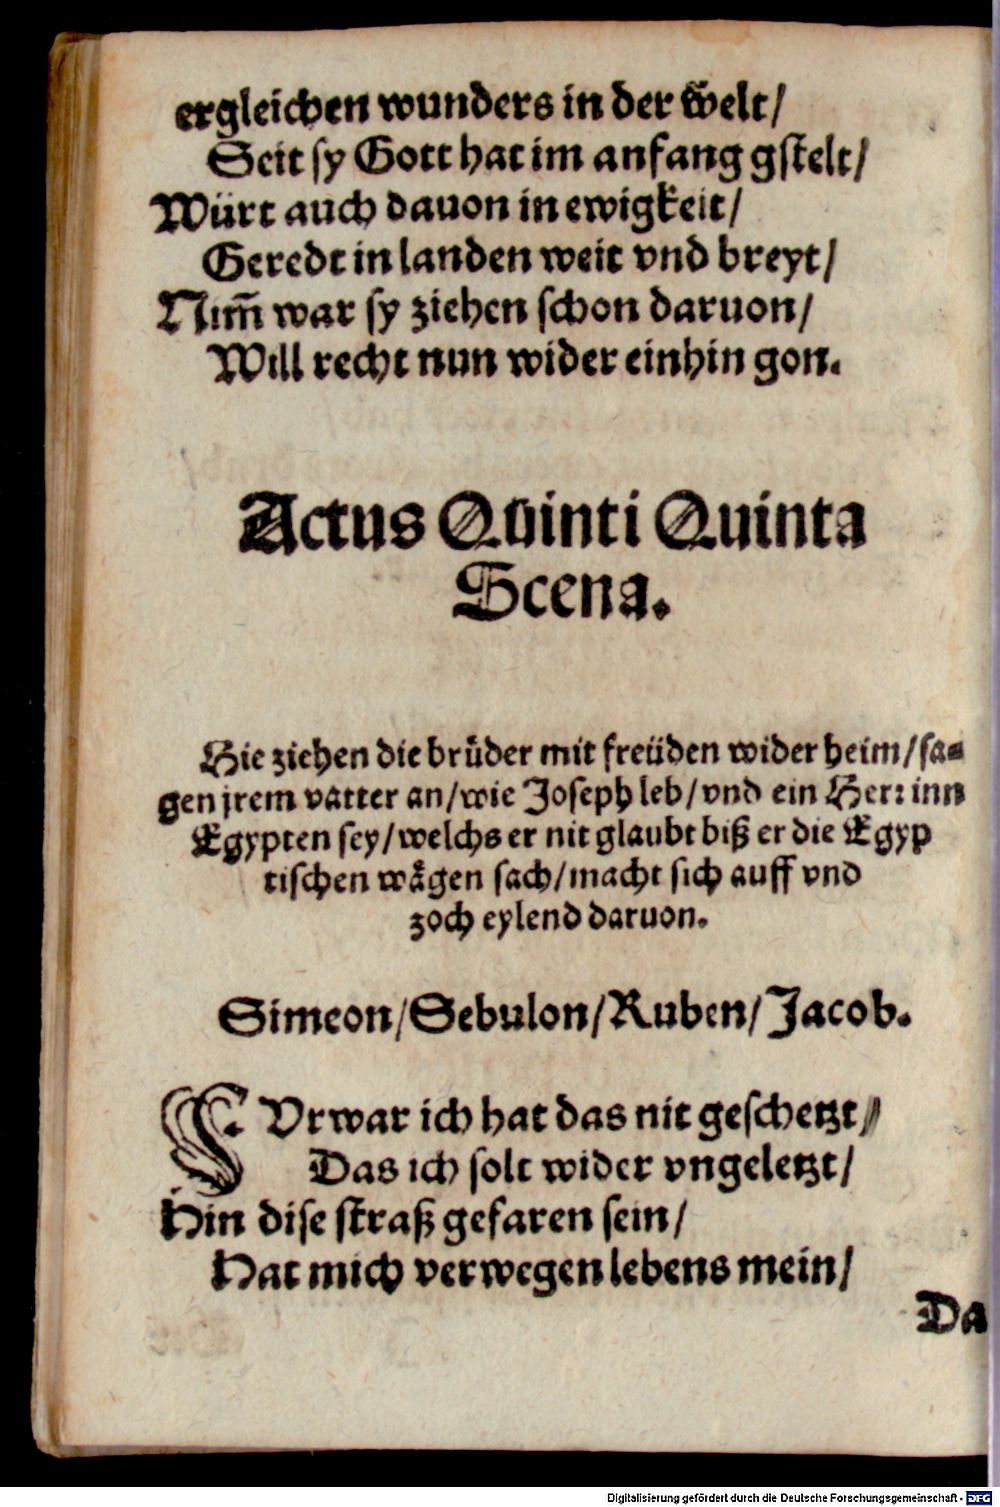 ergleichen wunders in der welt/
Seit sy Gott hat im anfang gstelt/
Würt auch dauon in ewigkeit/
Geredt in landen weit vnd breyt/
Nim̃ war sy ziehen schon daruon/
Will recht nun wider einhin gon.
Actus Quinti Quinta
Scena.
Hie ziehen die brüder mit freüden wider heim/sa⸗
gen jrem vatter an/wie Joseph leb/vnd ein Herr inn
Egypten sey/welchs er nit glaubt biß er die Egyp
tischen waͤgen sach/macht sich auff vnd
zoch eylend daruon.
Simeon/Sebulon/Ruben/Jacob.
FVrwar ich hat das nit geschetzt/
Das ich solt wider vngeletzt/
Hin dise straß gefaren sein/
Hat mich verwegen lebens mein/
Da
Digitalisierung gefördert durch die Deutsche Forschungsgemeinschaft - DFG